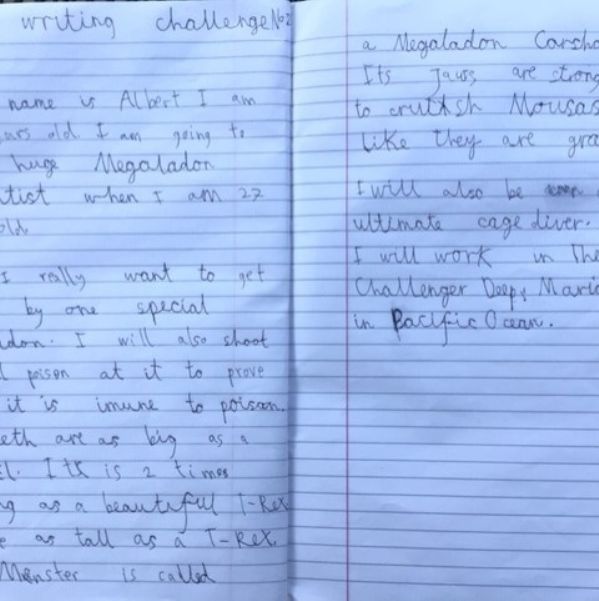 writing challenge No2
name is Albert I am
ars old I am going to
huge Megaladon
tist when I am 27
old.
I really want to get
by one special
don. I will also shoot
poison at it to prove
it is imune to poison.
eeth are as big as a
Itt is 2 times
g as a beautiful T-Rex
e as tall as a T-Rex.
Monster is called
a Megaladon Carsho
Its Jauss are strong
to crutsh Mousas
Like they are gra
I will also be
ultimate cage diver.
I will work in The
Challenger Deep, Maria
in Pacific Ocean.